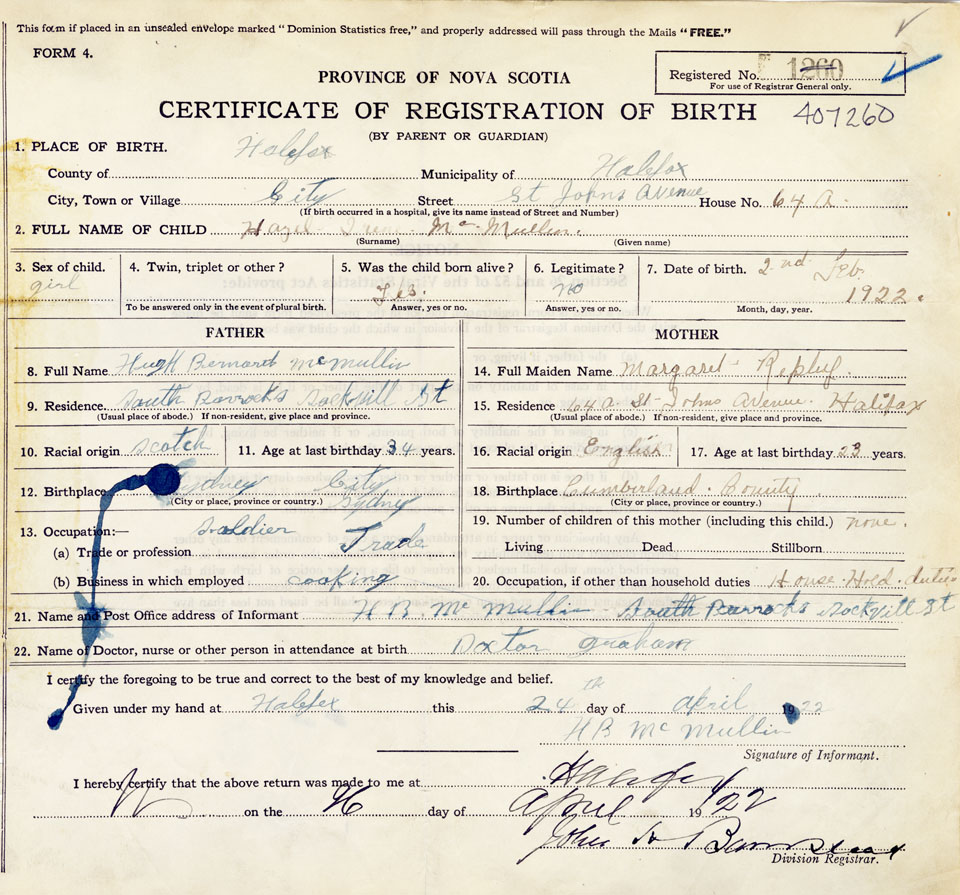 This form if placed in an unsealed envelope marked "Dominion Statistics free," and properly addressed will pass through the Mails "FREE."
FORM 4.
PROVINCE OF NOVA SCOTIA
Registered No. 1260
For use of Registrar General only.
CERTIFICATE OF REGISTRATION OF BIRTH 407260
(BY PARENT OR GUARDIAN)
1. PLACE OF BIRTH.
County of Halifax Municipality of Halifax
City, Town or Village City Street St Johns Avenue House No. 64 A.
(If birth occurred in a hospital, give its name instead of Street and Number)
2. FULL NAME OF CHILD Hazel Irene McMullin.
(Surname) (Given name)
3. Sex of child. 4. Twin, triplet or other? 5. Was the child born alive? 6. Legitimate? 7. Date of birth. 2nd Feb
girl Yes. no 1922.
To be answered only in the event of plural birth. Answer, yes or no. Answer, yes or no. Month, day, year.
FATHER MOTHER
8. Full Name Hugh Bernard McMullin 14. Full Maiden Name Margaret
9. Residence South Barrocks Sackvill St 15. Residence 64 A St Johns Avenue Halifax
(Usual place of abode.) If non-resident, give place and province. (Usual place of abode.) If non-resident, give place and province.
10. Racial origin Scotch 11. Age at last birthday 34 years. 16. Racial origin English 17. Age at last birthday 23 years.
12. Birthplace Sydney City 18. Birthplace Cumberland County
(City or place, province or country.) Sydny (City or place, province or country.)
13. Occupation:— Soldier 19. Number of children of this mother (including this child.) none.
(a) Trade or profession Trade Living Dead Stillborn
(b) Business in which employed cooking 20. Occupation, if other than household duties House Hold duties
21. Name and Post Office address of Informant H B McMullin South Barrocks Sackvill St
22. Name of Doctor, nurse or other person in attendance at birth Doxtor Graham
I certify the foregoing to be true and correct to the best of my knowledge and belief.
Given under my hand at Halifax this 24th day of April 1922
H B McMullin
Signature of Informant.
I hereby certify that the above return was made to me at Halifax
on the 26 day of April 1922
John
Division Registrar.